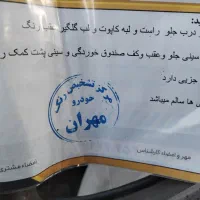 درب جلو راست و لبه کاپوت و لب گلگیر عقب رنگ
سینی جلو وعقب وکف صندوق خوردگی و سینی پشت کمک ر
جزیی دارد
ها سالم میباشد
مرکز تشخیص رنگ
خودرو
مهران
مهر و امضاء کارشناس
امضاء مشتری